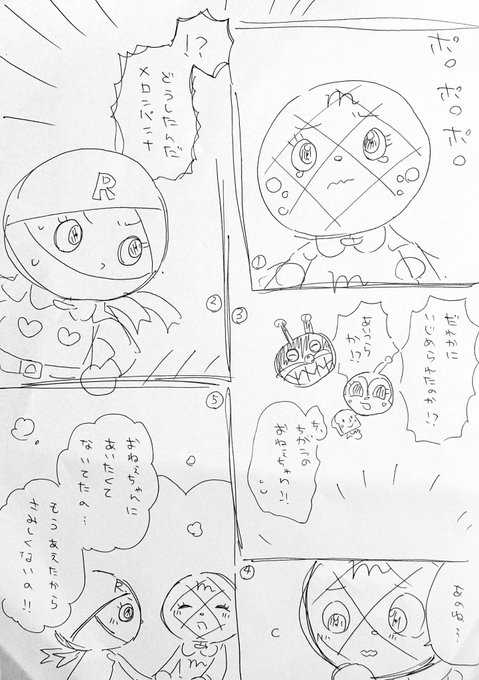 ポロ
ポロ
ポロ
m
m
①
!?
どうしたんだ
メロンパンナ
R
②
③
だれかに
いじめられたのか!?
あいつら
か!?
ち、
ちがうの
おねぇちゃん!!
あのね…
m
④
⑤
おねぇちゃんに
あいたくて
ないてたの…
もうあえたから
さみしくないの!!
R
m
m